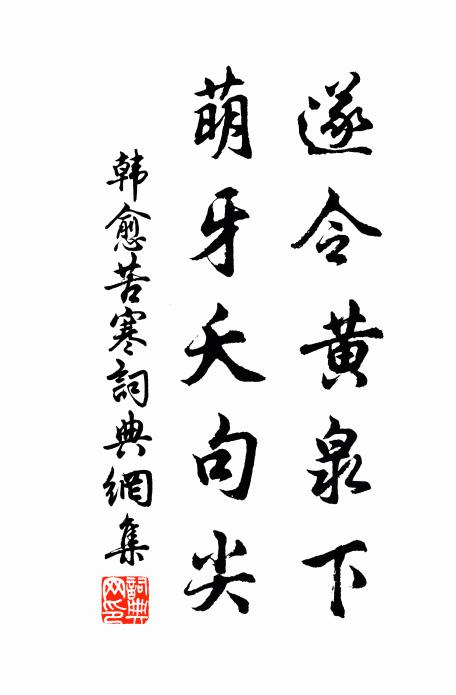 遂令黄泉下
萌牙夭句尖
韩愈苦寒詞典網集
詞典网印